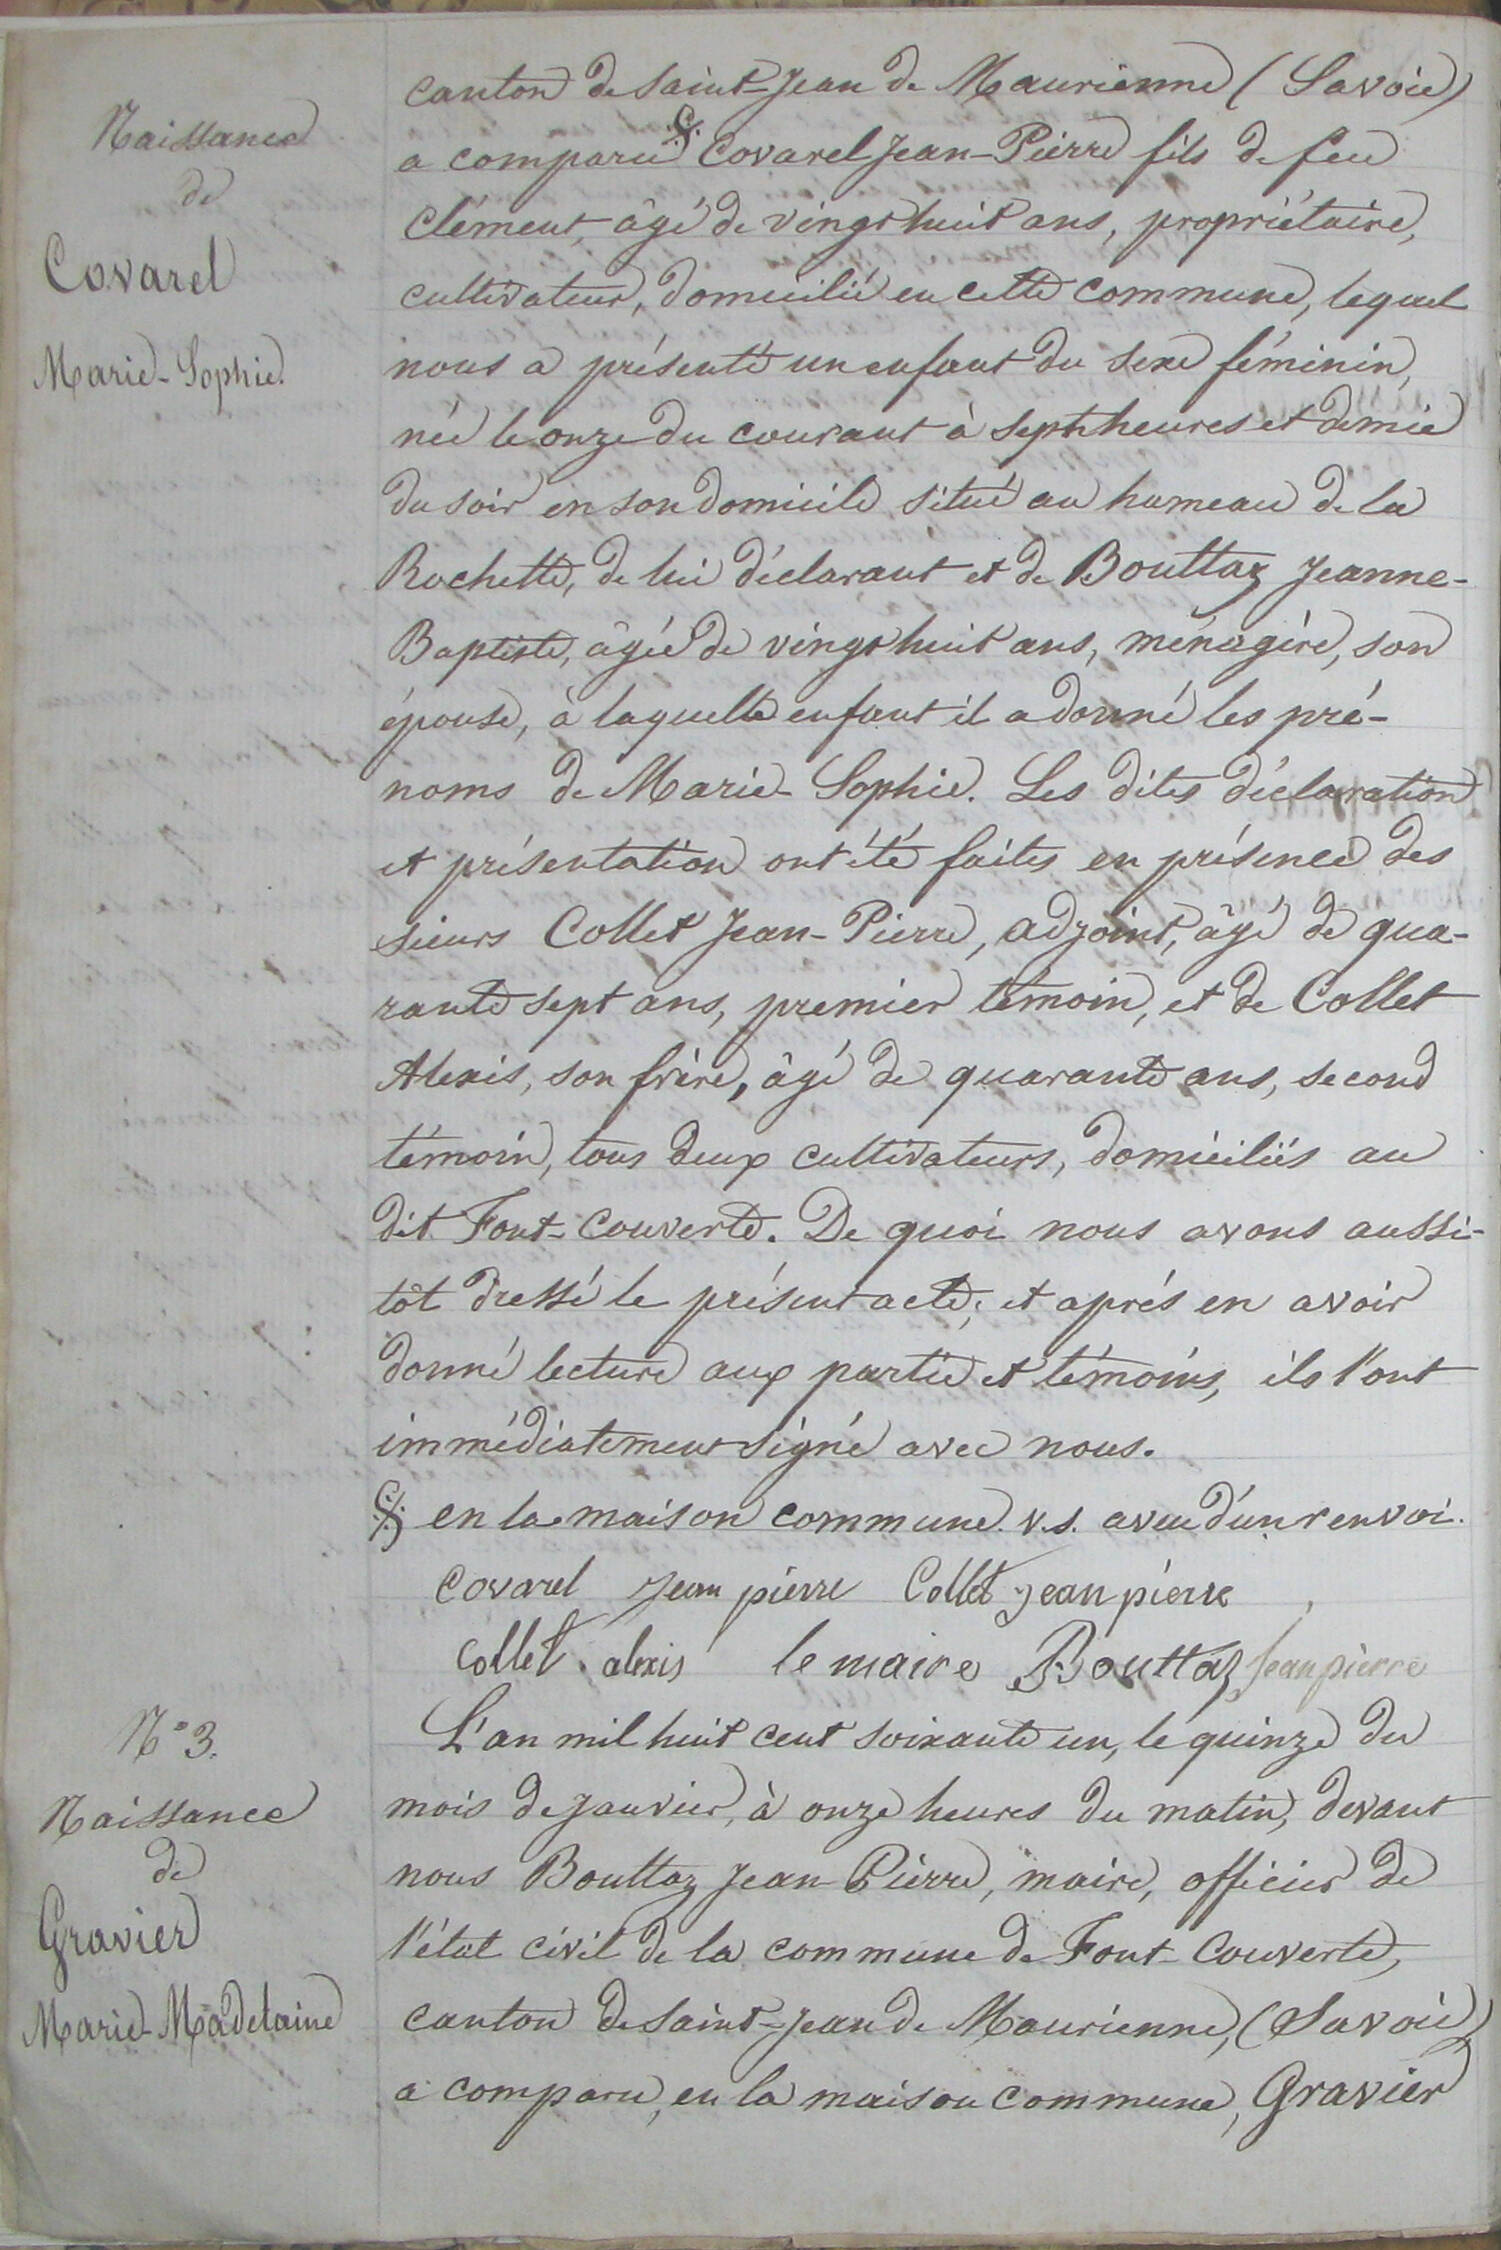 Naissance
de
Covarel
Marie-Sophie.
canton de Saint-Jean de Maurienne (Savoie)
a comparu § Covarel Jean-Pierre fils de feu
Clément, âgé de vingt huit ans, propriétaire,
cultivateur, domicilié en cette commune, lequel
nous a présenté un enfant du sexe féminin,
née le onze du courant à sept heures et demie
du soir en son domicile situé au hameau de la
Rochette, de lui déclarant et de Bouttaz Jeanne-
Baptiste, âgée de vingt huit ans, ménagère, son
épouse, à laquelle enfant il a donné les pré-
noms de Marie-Sophie. Les dites déclaration
et présentation ont été faites en présence des
sieurs Collet Jean-Pierre, adjoint, âgé de qua-
rante sept ans, premier témoin, et de Collet
Alexis, son frère, âgé de quarante ans, second
témoin, tous deux cultivateurs, domiciliés au
dit Font-Couverte. De quoi nous avons aussi-
tôt dressé le présent acte; et après en avoir
donné lecture aux partie et témoins, ils l'ont
immédiatement signé avec nous.
§ en la maison commune. v.s. aveu d'un renvoi.
Covarel Jean pierre Collet Jean pierre
Collet alexis le maire Bouttaz Jean pierre
N° 3.
Naissance
de
Gravier
Marie-Madelaine
L'an mil huit cent soixante un, le quinze du
mois de Janvier, à onze heures du matin, devant
nous Bouttaz Jean-Pierre, maire, officier de
l'état civil de la commune de Font-Couverte,
canton de Saint-Jean de Maurienne, (Savoie)
a comparu, en la maison commune, Gravier